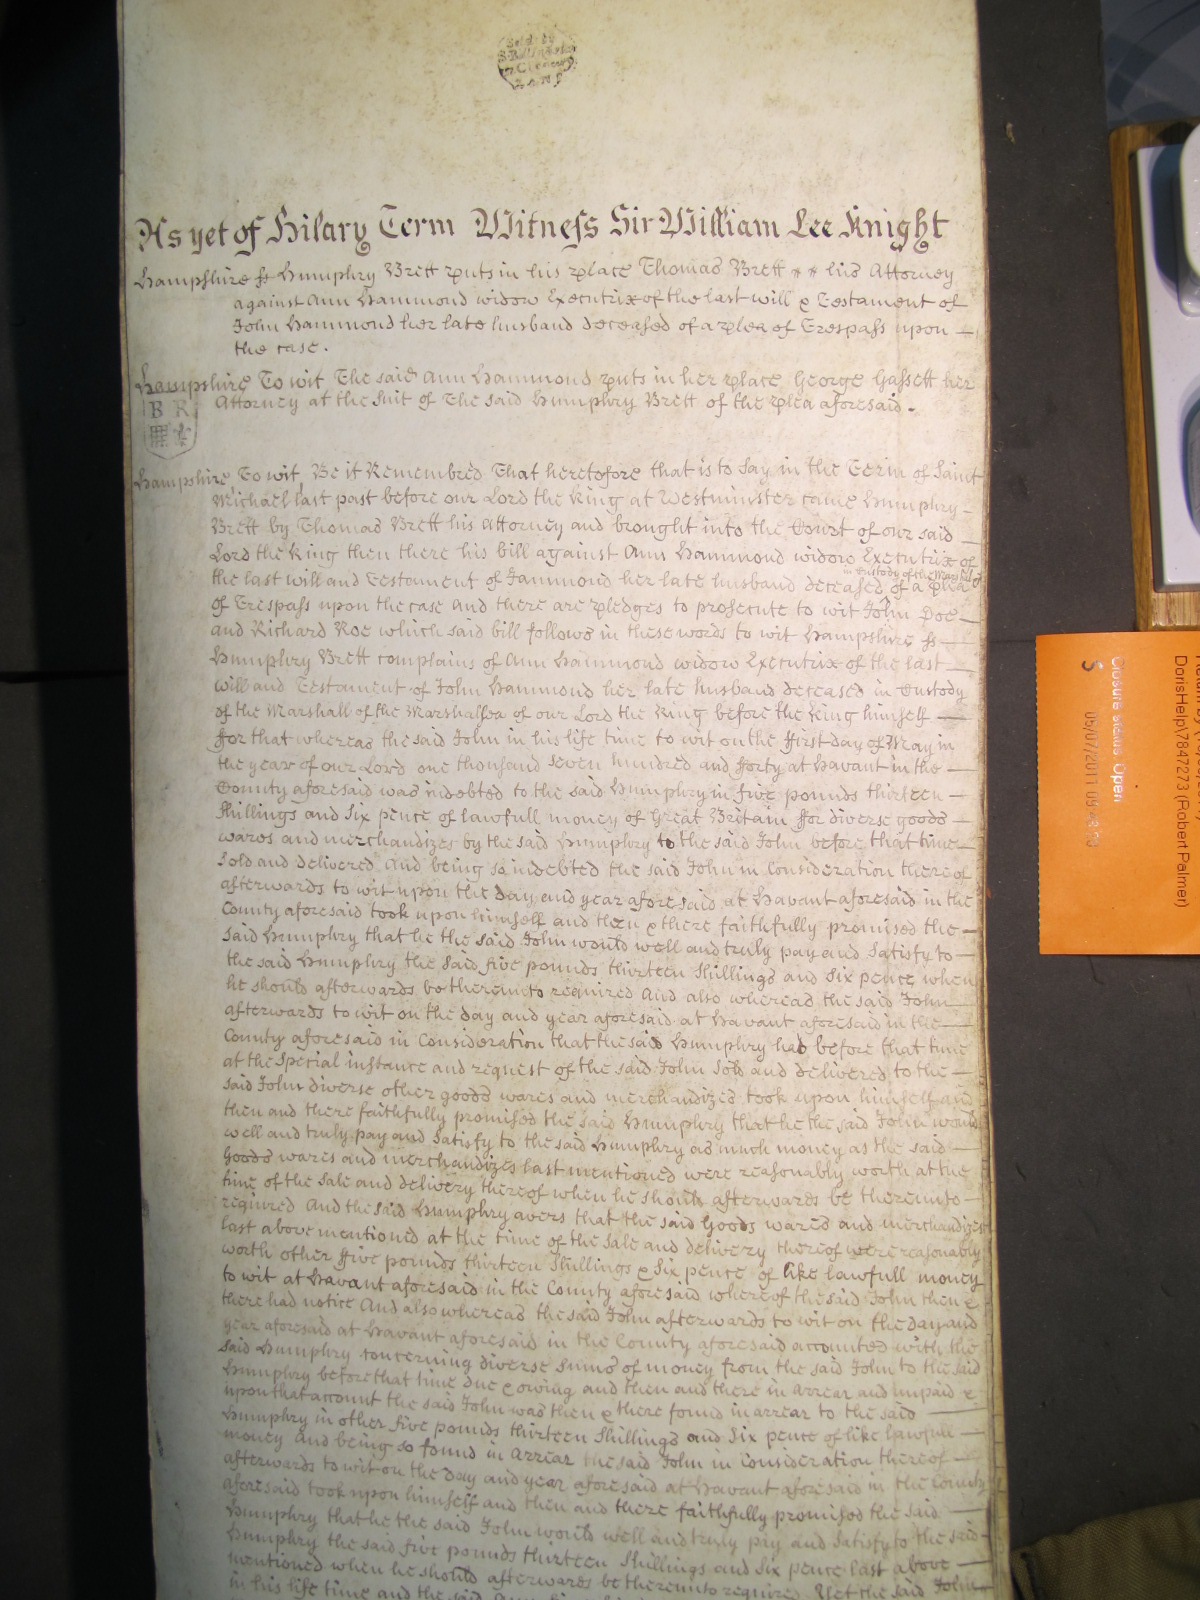 Sold by
As yet of Hilary Term Witness Sir William Lee Knight
Hampshire ss Humphry Brett puts in his place Thomas Brett his Attorney
against Ann Hammond widow Executrix of the last will & Testament of
John Hammond her late husband deceased of a plea of Trespass upon
the case.
Hampshire To wit The said Ann Hammond puts in her place George Gassett her
Attorney at the Suit of The said Humphry Brett of the plea aforesaid.
B R
Hampshire To wit, Be it Remembred That heretofore that is to Say in the Term of Saint
Michael last past before our Lord the King at Westminster came Humphry
Brett by Thomas Brett his Attorney and brought into the Court of our said
Lord the King then there his bill against Ann Hammond widow Executrix of
in Custody of the
the last will and Testament of Hammond her late husband deceased of a plea
of Trespass upon the case And there are pledges to prosecute to wit John Doe
and Richard Roe which said bill follows in these words to wit Hampshire ss
Humphry Brett complains of Ann Hammond widow Executrix of the last
will and Testament of John Hammond her late husband deceased in Custody
of the Marshall of the Marshalsea of our Lord the King before the King himself
ffor that whereas the said John in his life time to wit on the ffirst day of May in
the year of our Lord one thousand seven hundred and fforty at Havant in the
County aforesaid was indebted to the said Humphry in five pounds thirteen
Shillings and six pence of lawfull money of Great Britain ffor diverse goods
wares and merchandizes by the said Humphry to the said John before that time
Sold and delivered And being so indebted the said John in Consideration thereof
afterwards to wit upon the Day and year aforesaid at Havant aforesaid in the
County aforesaid took upon himself and then & there faithfully promised the
said Humphry that he the said John would well and truly pay and Satisfy to
the said Humphry the said five pounds thirteen Shillings and Six pence when
he should afterwards be thereunto required And also whereas the said John
afterwards to wit on the day and year aforesaid at Havant aforesaid in the
County aforesaid in Consideration that the said Humphry had before that time
at the Special instance and request of the said John Sold and delivered to the
said John diverse other goods wares and merchandizes took upon himself and
then and there faithfully promised the said Humphry that he the said John would
well and truly pay and Satisfy to the said Humphry as much money as the said
Goods wares and merchandizes last mentioned were reasonably worth at the
time of the Sale and delivery thereof when he should afterwards be thereunto
required And the said Humphry avers that the said Goods wares and merchandizes
last above mentioned at the time of the Sale and delivery thereof were reasonably
worth other ffive pounds thirteen Shillings & Six pence of like lawfull money
to wit at Havant aforesaid in the County aforesaid whereof the said John then &
there had notice And also whereas the said John afterwards to wit on the Day and
year aforesaid at Havant aforesaid in the County aforesaid accounted with the
said Humphry concerning diverse Sums of money from the said John to the said
Humphry before that time Due & owing and then and there in Arrear and unpaid &
upon that account the said John was then & there found in arrear to the said
Humphry in other five pounds thirteen Shillings and Six pence of like lawfull
money And being so found in Arrear the said John in Consideration thereof
afterwards to wit on the Day and year aforesaid at Havant aforesaid in the County
aforesaid took upon himself and then and there faithfully promised the said
Humphry that he the said John would well and truly pay and Satisfy to the said
Humphry the said five pounds thirteen Shillings and Six pence last above
mentioned when he should afterwards be thereunto required Yet the said John
in his life time and the said Ann
Closure status Open
S
05/07/2011 09
DorisHelp\7847273 (Robert Palmer)